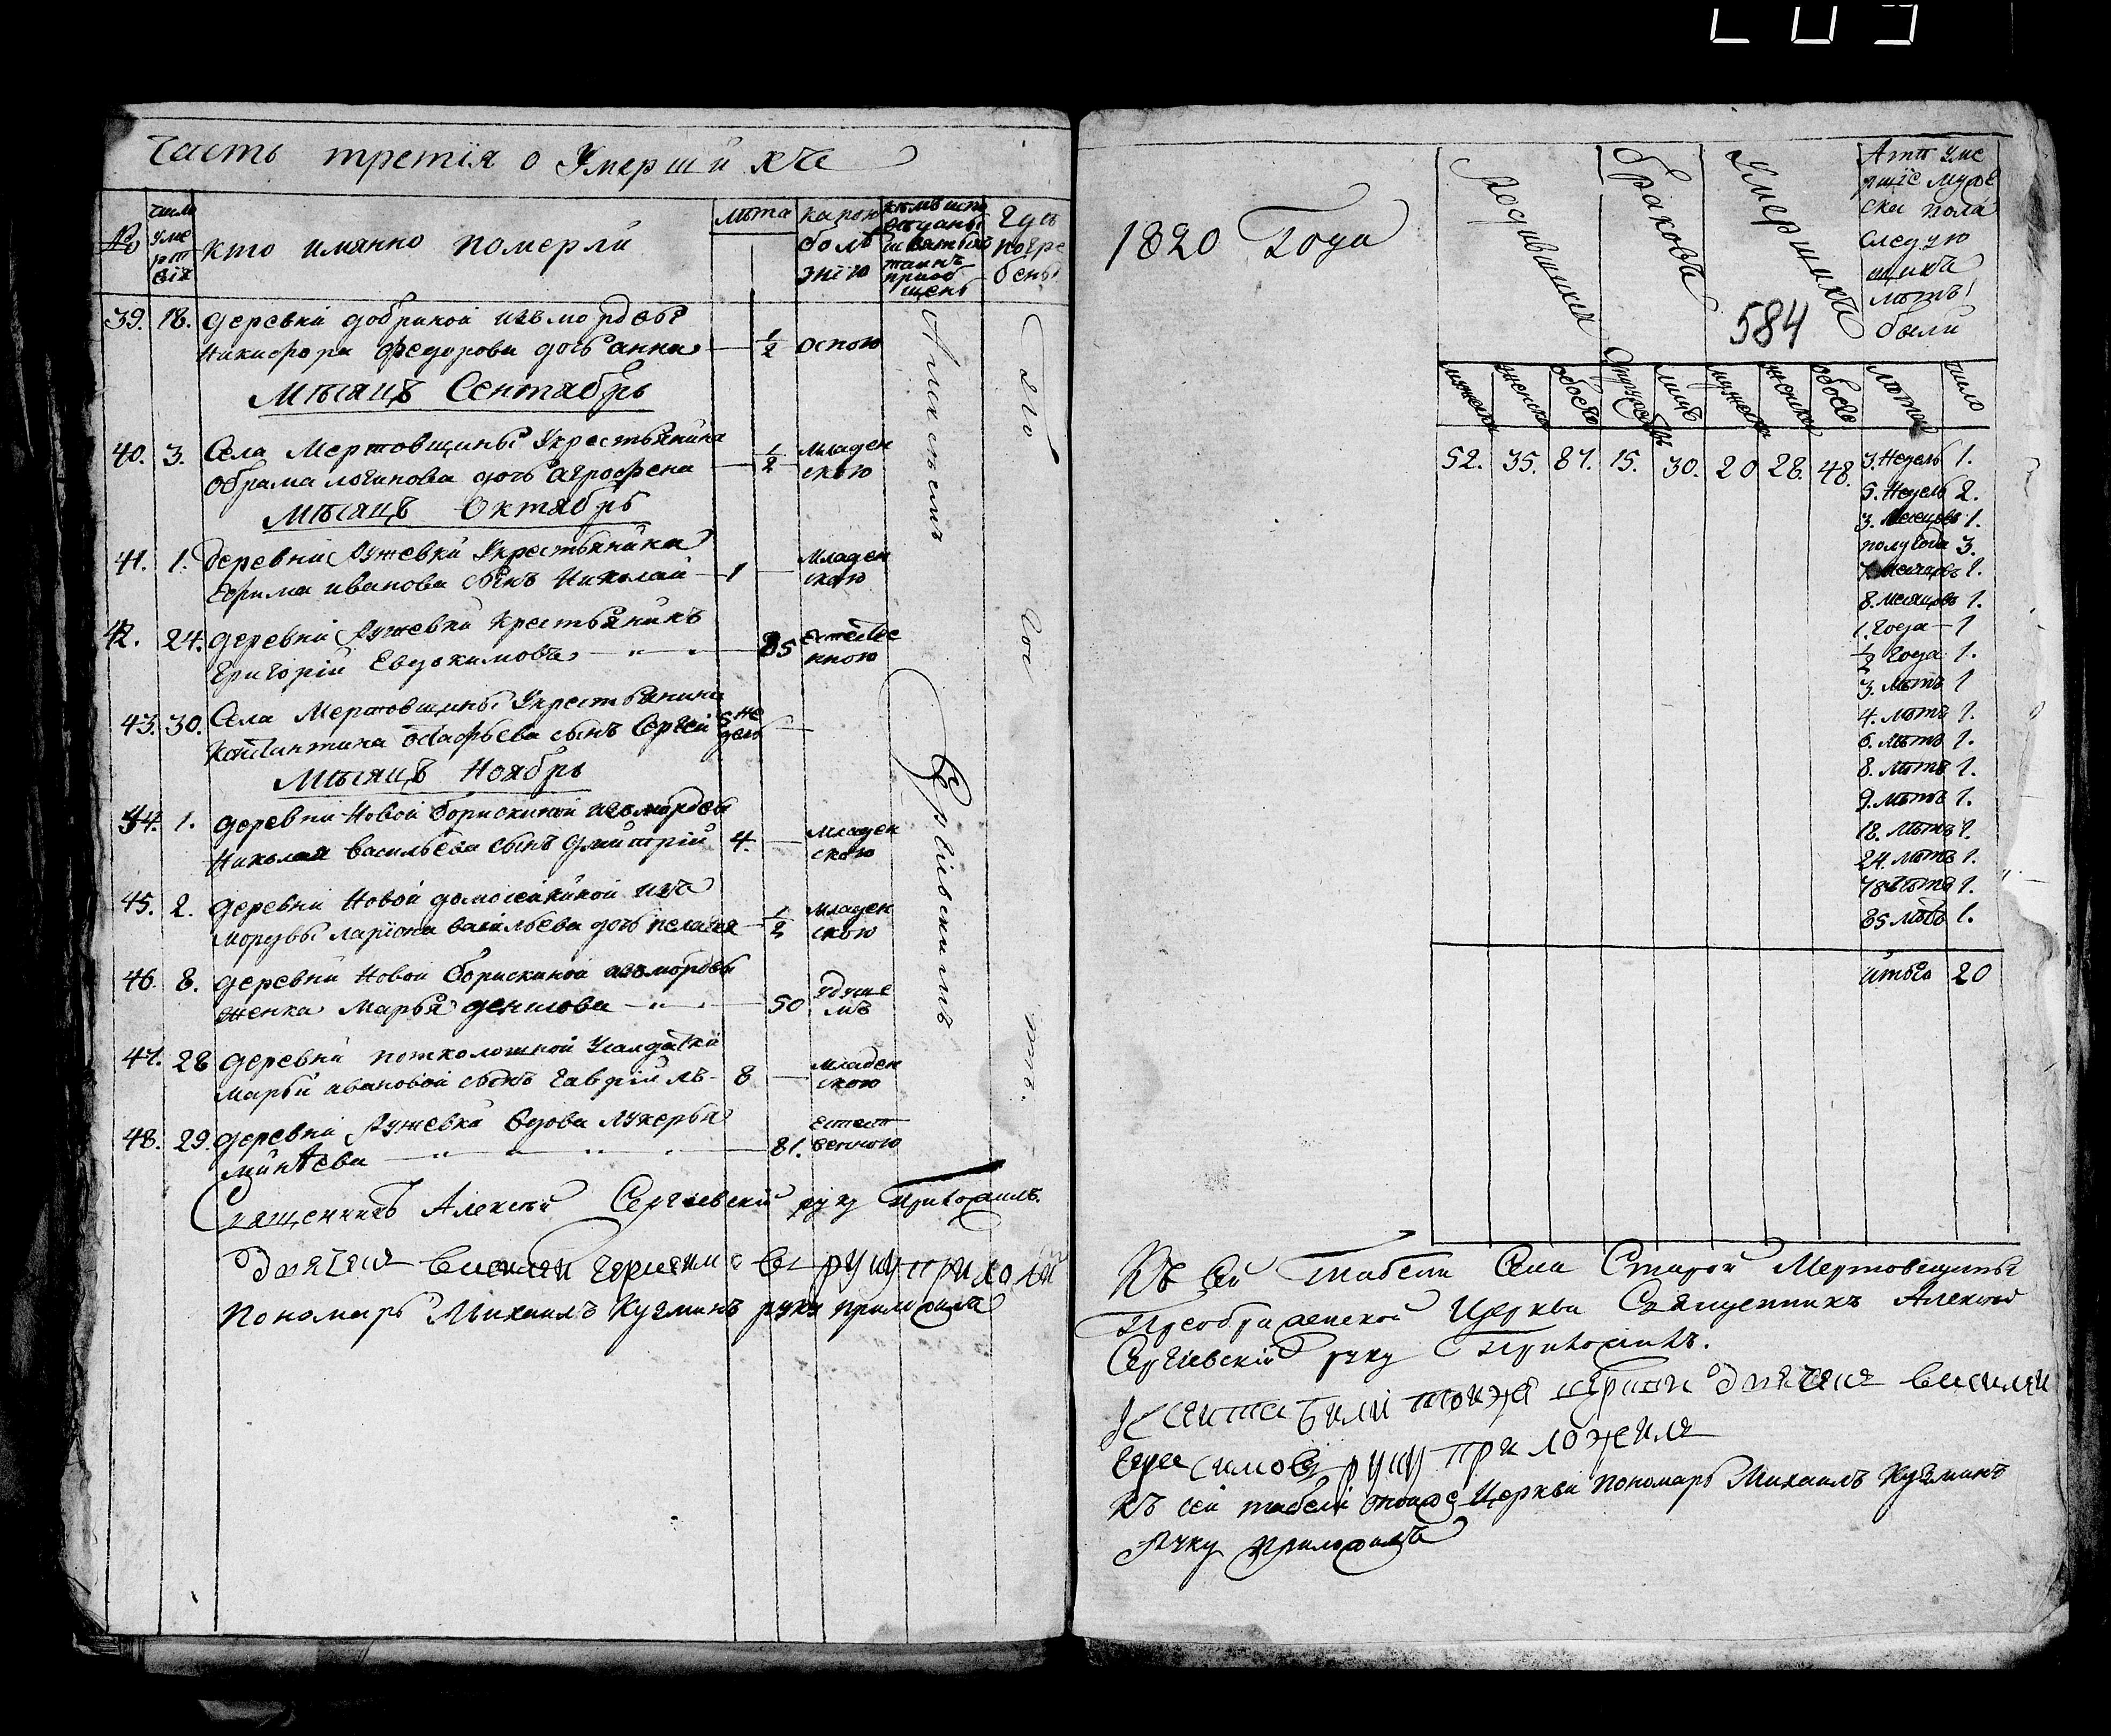 Часть третїя о Умершихъ
№
число умертвїя
кто имянно померли
лѣта
какою болѣзнїю
кѣмъ исповѣданы и святыхъ таинъ приобщены
гдѣ погребены
39. 18. деревни добриной изъ мордвы
Никифора федорова дочь анна 1/2 оспою
Мѣсяцъ Сентябрь
40. 3. Села Мертовщины Укрестьянина
Обрама логинова дочь агрофена 1/2 Младенскою
Мѣсяцъ Октябрь
41. 1. деревни Ружевки Укрестьянина
Ефима иванова сынъ Николай 1 Младенскою
42. 24. деревни Ружевки крестьянинъ
Григорій Евдокимовъ 85 Естественною
43. 30. Села Мертовщины Укрестьянина
Костантина Остафьева сынъ Сергей 5 недель
Мѣсяцъ Ноябрь
44. 1. деревни Новой борискиной изъ мордвы
Николая васильева сынъ дмитрій 4. Младенскою
45. 2. деревни Новой домосейкиной изъ
Мордвы ларїона васильева дочь пелагея 1/2 Младенскою
46. 8. деревни Новой борискиной изъ мордвы
женка Марья денисова 50 Удушемъ
47. 28 деревни потколошной Усалдатки
Марьи ивановой сынъ гаврїилъ 8 Младенскою
48. 29. деревни Ружевки вдова лукерья
минѣева 81. Естественною
Алексѣемъ Сергїевскимъ
Священникъ Алексѣй Сергїевскій руку приложилъ.
дьячекъ василей герасимовъ руку приложи
Пономарь Михаилъ Кузминъ руку приложилъ
1820 Года
Родившихся
браковъ
Умершихъ
584
А изъ умершїе мужеска пола следующихъ лѣтъ были
мужеска женска обоего супружествъ лицъ мужеска женска обоего лѣта число
52. 35. 87. 15. 30. 20 28. 48.
3. Недель 1.
5. Недель 2.
3. Месецовъ 1.
полугода 3.
7. Месяцовъ 1.
8. месяцовъ 1.
1. года 1
1/2 года 1.
3. лѣтъ 1
4. лѣтъ 1.
6. лѣтъ 1.
8. лѣтъ 1.
9. лѣтъ 1.
18. лѣтъ 1.
24. лѣтъ 1.
78 лѣтъ 1.
85 лѣтъ 1.
итого 20
Къ сей Табели Села Старой Мертовщины
Преображенской Церкви Священникъ Алексѣй
Сергїевскій руку Приложилъ.
тойже церкви дьячекъ василей
герасимовъ руку приложилъ
Къ сей табели тоижъ Церкви пономарь Михаилъ Кузминъ
Руку приложилъ